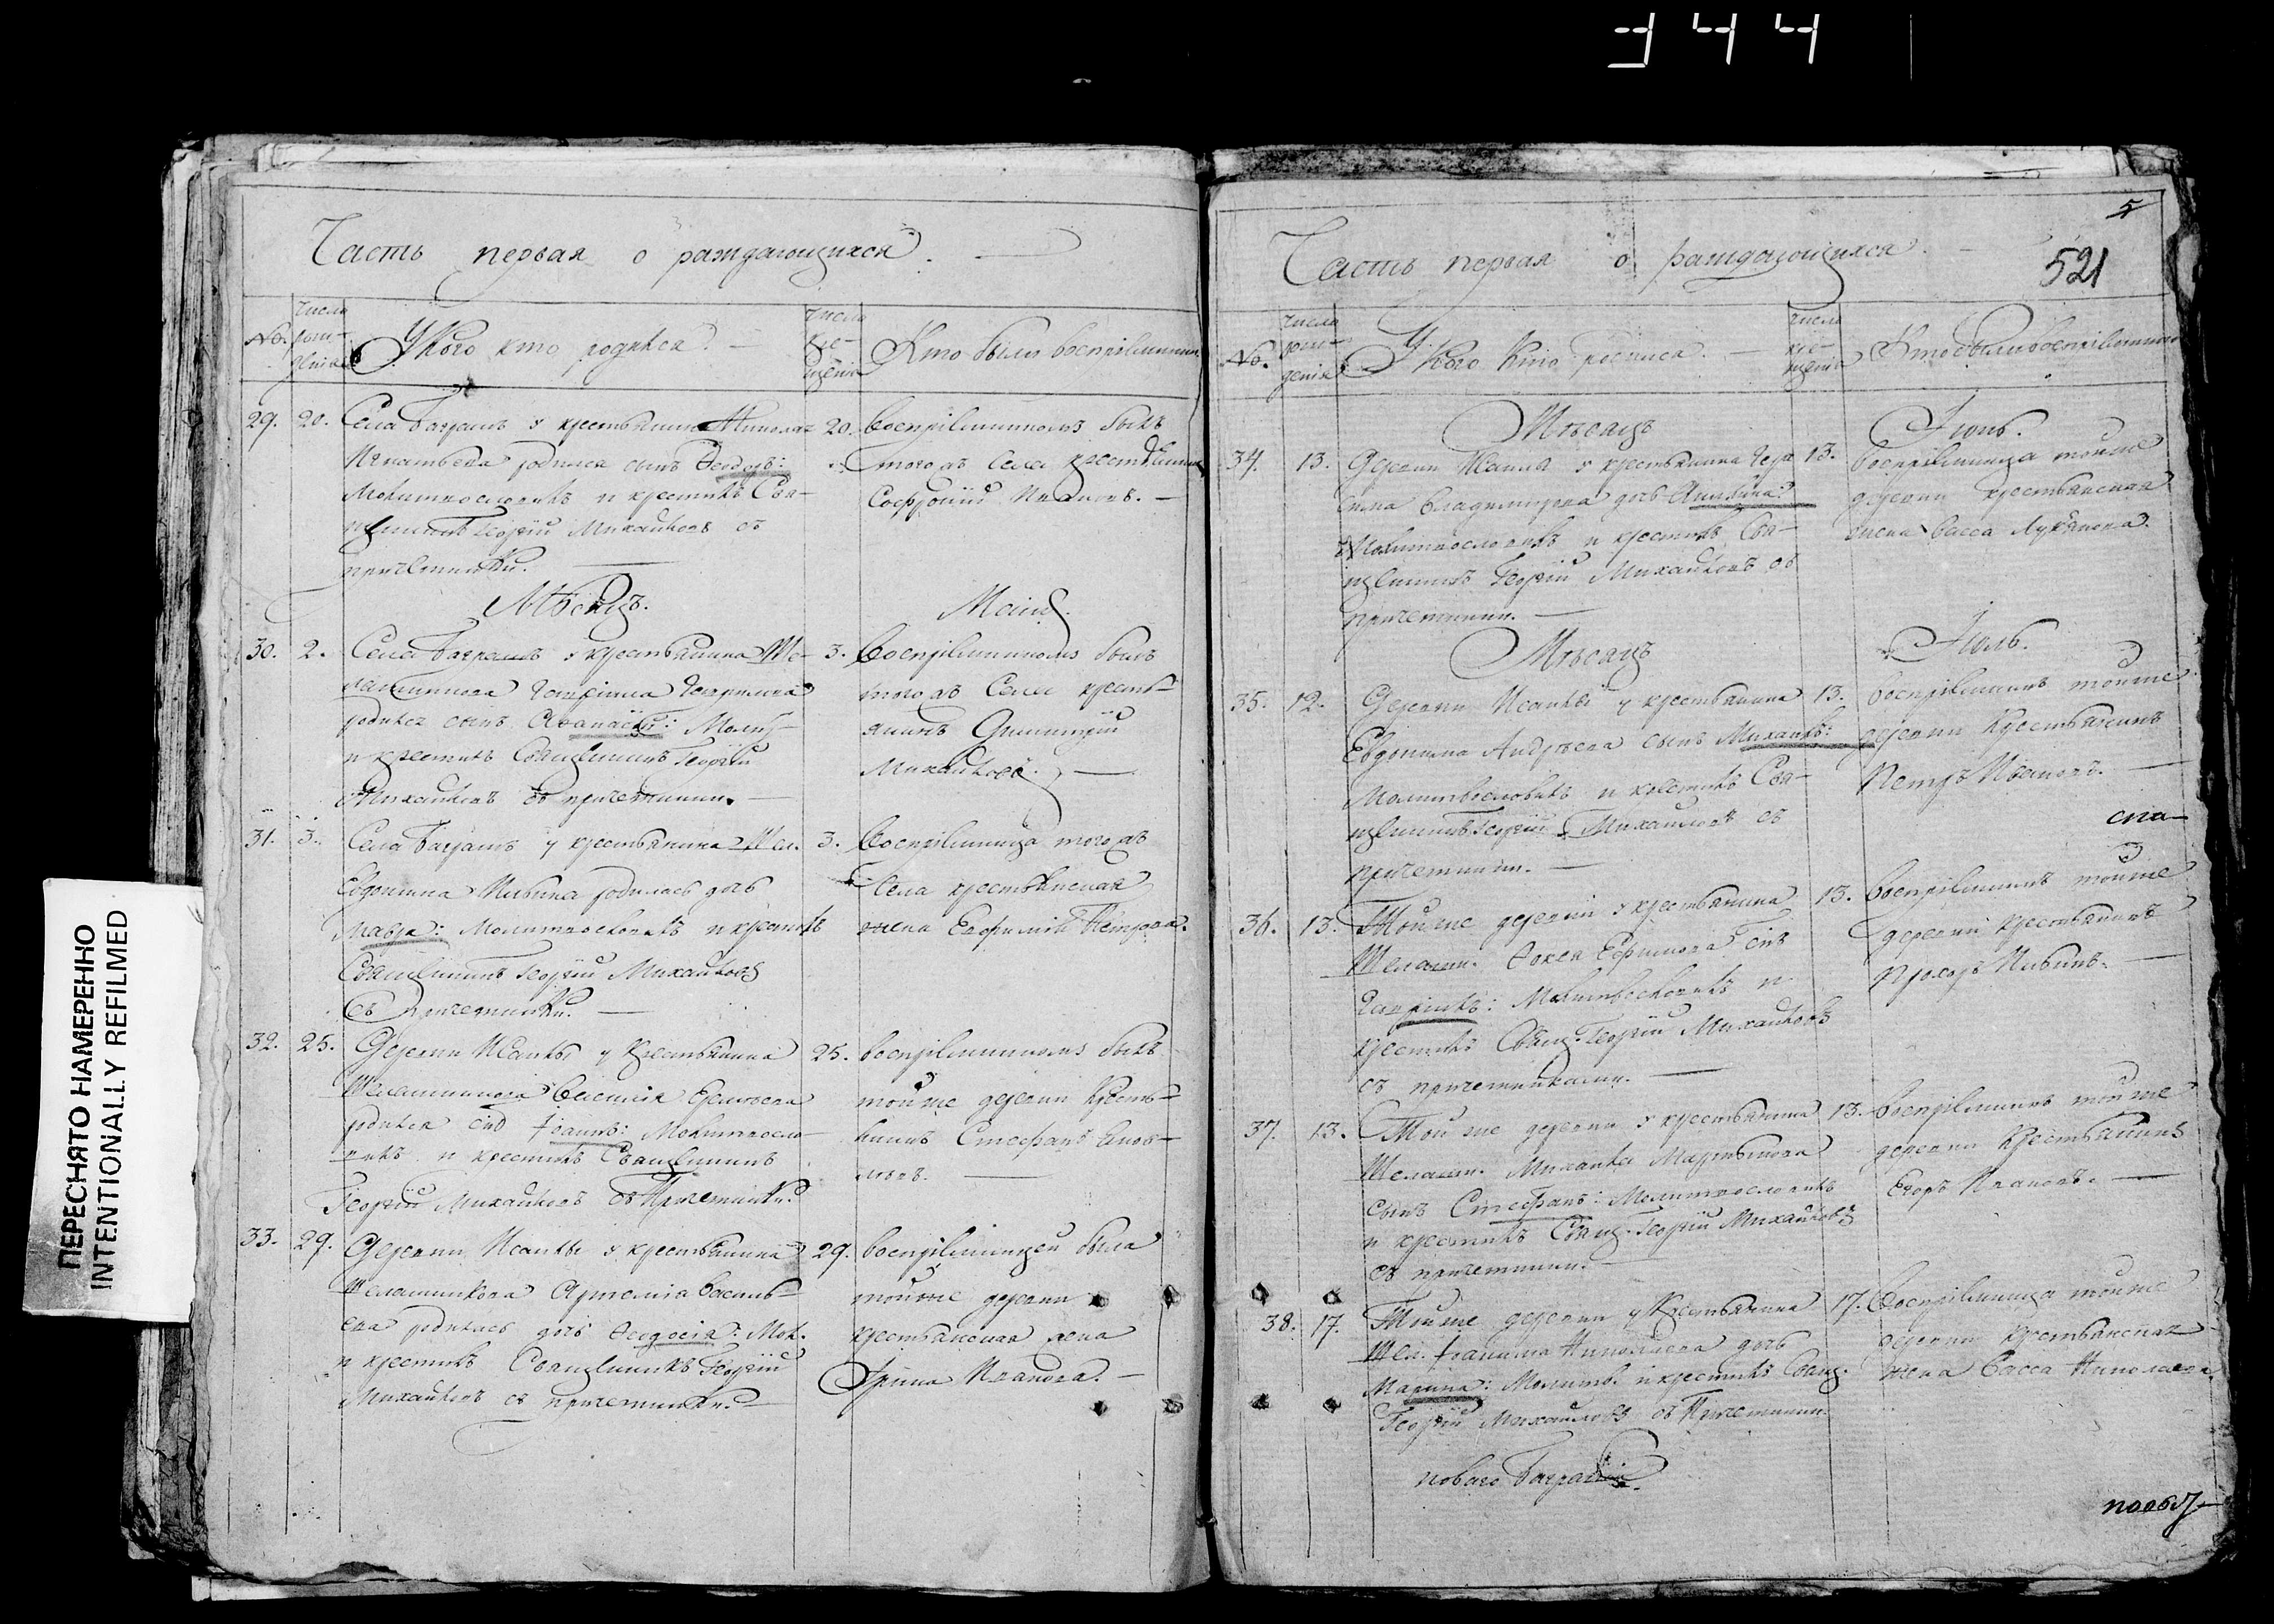 344
ПЕРЕСНЯТО НАМЕРЕННО
INTENTIONALLY REFILMED
Часть первая о раждающихся.
No.
числа
рож-
денія
У Кого кто родился.
числа
кре-
щенія
Кто были воспріемники
29. 20. Села Баграшъ у крестьянина Никола-
Игнатьева родился сынъ Феодоръ:
Молитвословилъ и крестилъ Свя-
щенникъ Георгій Михайловъ съ
причетники.
20. Воспріемникомъ былъ
тогожъ Села крестьянинъ
Софроній Ивановъ.
Мѣсяцъ. Маій.
30. 2. Села Баграшъ у крестьянина Ше-
лашникова Гавріила Гаврилова
родился сынъ Афанасій: Молит-
и крестилъ Священникъ Георгій
Михайловъ съ причетники.
3. Воспріемникомъ былъ
тогожъ Села кресть-
янинъ Димитрій
Михайловъ.
31. 3. Села Баграшъ у крестьянина Шел.
Евдокима Ильина родилась дочь
Мавра: Молитвословилъ и крестилъ
Священникъ Георгій Михайловъ
съ причетники.
3. Воспріемница тогожъ
Села крестьянская
жена Евфимія Петрова.
32. 25. Деревни Исанки у крестьянина
Шелашникова Василія
родился Іоаннъ: Молитвосло-
вилъ и крестилъ Священникъ
Георгій Михайловъ съ Причетники.
25. Воспріемникомъ былъ
тойже деревни Кресть-
янинъ Стефанъ
33. 29. Деревни Исанки у крестьянина
Шелашникова Артемія Василь-
ева родилась дочь Феодосія: Мол.
и крестилъ Священникъ Георгій
Михайловъ съ причетники.
29. воспріемницей была
тойже деревни
крестьянская жена
Ирина Иванова.
5
521
Часть первая о раждающихся.
No.
числа
рож-
денія
У Кого Кто родился.
числа
кре-
щенія
Кто были воспріемники
Мѣсяцъ Іюнь.
34. 13. Деревни Исанки у крестьянина Гера-
сима Владимірова дочь Акилина:
Молитвословилъ и крестилъ Свя-
щенникъ Георгій Михайловъ съ
причетники.
13. Воспріемница тойже
деревни крестьянская
жена Васса Лукьянова.
Мѣсяцъ Іюль.
35. 12. Деревни Исанки у крестьянина
Евдокима Андреева сынъ Михаилъ:
Молитвословилъ и крестилъ Свя-
щенникъ Георгій Михайловъ съ
причетники.
13. воспріемникъ тойже
деревни Крестьянинъ
Петръ Ивановъ.
спа-
36. 13. Тойже деревни у крестьянина
Шелашн. Фоки Ефимова сынъ
Гавріилъ: Молитвословилъ и
крестилъ Свящ. Георгій Михайловъ
съ причетниками.
13. Воспріемникъ тойже
деревни крестьянинъ
Прохоръ Ильинъ.
37. 13. Тойже деревни у крестьянина
Шелашн. Михаила Мартынова
сынъ Стефанъ: Молитвословилъ
и крестилъ Свящ. Георгій Михайловъ
съ причетники.
13. Воспріемникъ тойже
деревни Крестьянинъ
Егоръ Ивановъ.
38. 17. Тойже деревни у Крестьянина
Шел. Іоакима Николаева дочь
Марина: Молитв. и крестилъ Свящ.
Георгій Михайловъ съ Причетники.
17. Воспріемница тойже
деревни Крестьянская
жена Васса Николаева.
новаго